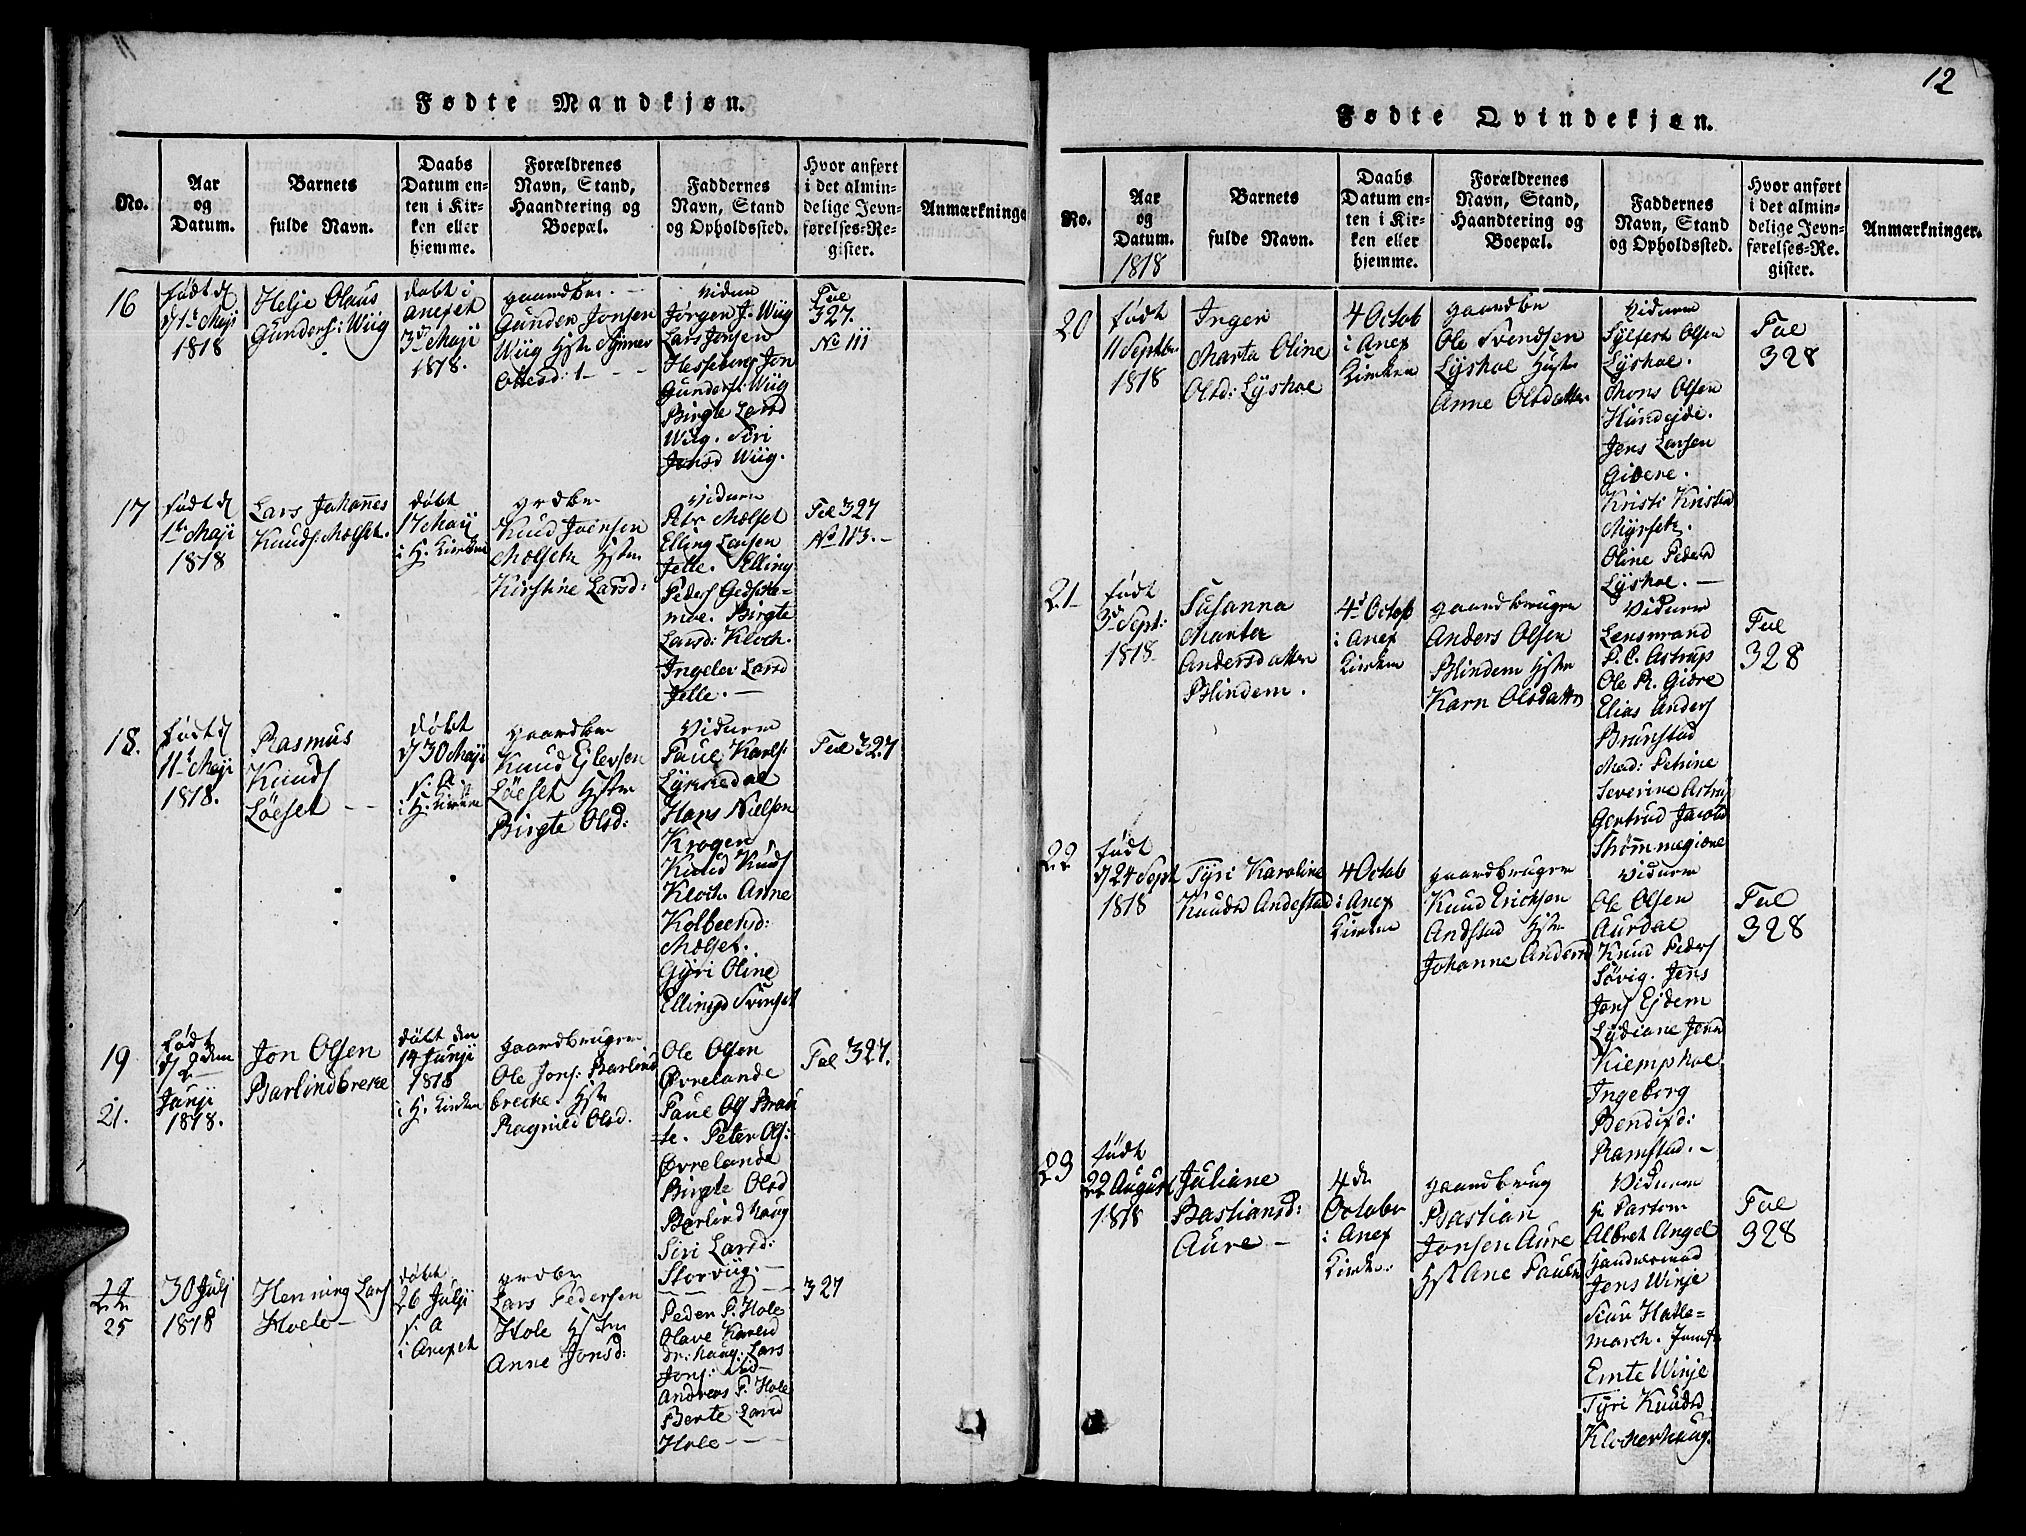 11
Fødte Mandkjøn.
No.
Aar
og
Datum.
Barnets
fulde Navn.
Daabs
Datum en-
ten i Kir-
ken eller
hjemme.
Forældrenes
Navn, Stand,
Haandtering og
Boepæl.
Faddernes
Navn, Stand
og Opholdssted.
Hvor anført
i det almin-
delige Jevn-
førelses-Re-
gister.
Anmærkninge
16
født d
1te Maji
1818
Helje Olaus
Gunders: Wiig
døbt i
anexet
3d Maji
1818.
gaardbr.
Gunder Jonsen
Wiig Hstr
Ottesd:
vidum
Jørgen J. Wiig
Lars Jonsen
Hesseberg Jon
Gunders: Wiig
Birgte Larsd
Wiig. Siri
Jonsd Wiig.
Fol
327.
No 111
17
født d
1te Maji
1818
Lars Johannes
Knuds: Molset.
døbt
17 Maji
i H. Kirken
grdbr
Knud Joensen
Molseth Hstr
Kirstine Larsd:
Vidum
Petr Molset
Elling Larsen
Jelle. Elling
Peders
moe. Birgte
Larsd: Kloch.
Ingeler Larsd
Jelle.
Fol 327
No 113.
18.
født d
11te Maji
1818.
Rasmus
Knuds
Løeset
døbt
30 Maji
i H. Kirken
gaardbr
Knud Ejlevsen
Løeset Hstr
Birgte Olsd:
Vidum
Paul Karls:
Lyngedal
Hans Nielsen
Krogen
Knud Knuds
Kloch Anne
Kolbeensd:
Molset.
Gyri Oline
Ellingsd Svinset
Fol 327
19
21.
født
2den
Junji
1818.
Jon Olsen
Barlindbreke
døbt den
14 Junji
1818
i H. Kirken
gaardbruger
Ole Jons: Barlind
breke. Hstr
Ragnild Olsd.
Ole Olsen
Øvrelande
Paul Ols
Peter Ols:
Øvrelande
Birgte Olsd
Barlindhaug
Siri Larsd:
Storviig.
Fol 327.
25
30 Julj
1818
Henning Lars
Hole
døbt
26 Julji
i Anexet
grdbr
Lars Pedersen
Hole Hstr
Anne Jonsd:
Peder P. Hole
Olave Karlsd
haug. Lars
Jons:
Andreas P. Hole
Berte Larsd
Hole
327
12
Fødte Qvindekjøn.
No.
Aar
og
Datum.
1818
Barnets
fulde Navn.
Daabs
Datum en-
ten i Kir-
ken eller
hjemme.
Forældrenes
Navn, Stand,
Haandtering og
Boepæl.
Faddernes
Navn, Stand
og Opholdssted.
Hvor anført
i det almin-
delige Jevn-
førelses-Re-
gister.
Anmærkninger.
20
født
11 Septbr
1818
Inger
Marta Oline
Olsd: Lyshol
4 Octob
i Anex
Kirken
gaardbr
Ole Svendsen
Lyshol Hstr
Anne Olsdatter
Vidum
Sylfest Olsen
Lyshol.
Mons Olsen
Hundejde.
Jens Larsen
Givere.
Kristi Kristensd
Myrseth.
Oline Pedersd
Lyshol.
Fol
328
21
født
3d Sept:
1818
Susanna
Marta
Andersdatter
Blindem.
4d Octob
i Anex
Kirken
gaardbruger
Anders Olsen
Blindem Hstr
Karn Olsdatter
Vidum
Lensmand
P. C. Astrup
Ole R. Givre
Elias Anders
Brunstad
Mad: Petrine
Severine Astrup
Gertrud Jacobsd
Strømmegione
Fol
328
22
født
24 Sept
1818
Tyri Karoline
Knudsd Andestad
4 Octob
i Anex
Kirken
gaardbruger
Knud Ericksen
Andstad Hstr
Johanne Andersd
Vidum
Ole Olsen
Aurdal
Knud Peders
Søvig. Jens
Jons Ejdem
Lydiane Jonsd
Kiemphol
Ingeborg
Bendixd:
Ramstad.
Fol
328
23
født
22 August
1818
Juliane
Bastiansd:
Aure
4 de
October
i Anex
Kirken:
gaardbrug
Bastian
Jonsen Aure
Hst Ane Paulsd
Vidum
hr Pastor
Albret Angel
handelsmand
Jens Winje
Sivr Halle-
march. Jomfr
Emte Winje
Tyri Knudsd
Klokerhaug.
Fol
328